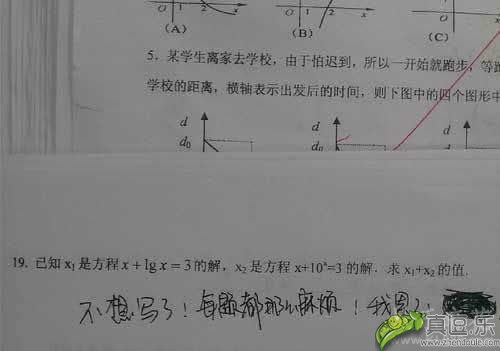 O 1 2 x
O 1 x
O
(A) (B) (C)
5. 某学生离家去学校，由于怕迟到，所以一开始就跑步，等跑
学校的距离，横轴表示出发后的时间，则下图中的四个图形中
d d d
d₀ d₀
19. 已知 x₁ 是方程 x + lg x = 3 的解，x₂ 是方程 x+10ˣ=3 的解. 求 x₁+x₂ 的值.
不想写了！每题都那么麻烦！我恩了
真逗乐
www.zhendoule.com